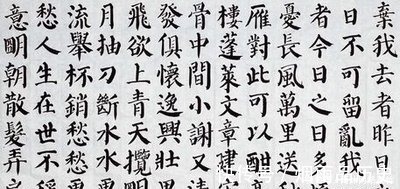 棄我去者昨日
日不可留亂我
者今日之日多
憂長風萬里送
雁對此可以酣
樓蓬萊文章建
骨中間小謝又
發俱懷逸興壯
飛欲上青天攬
月抽刀斷水水
流舉杯銷愁愁
愁人生在世不
意明朝散髮弄